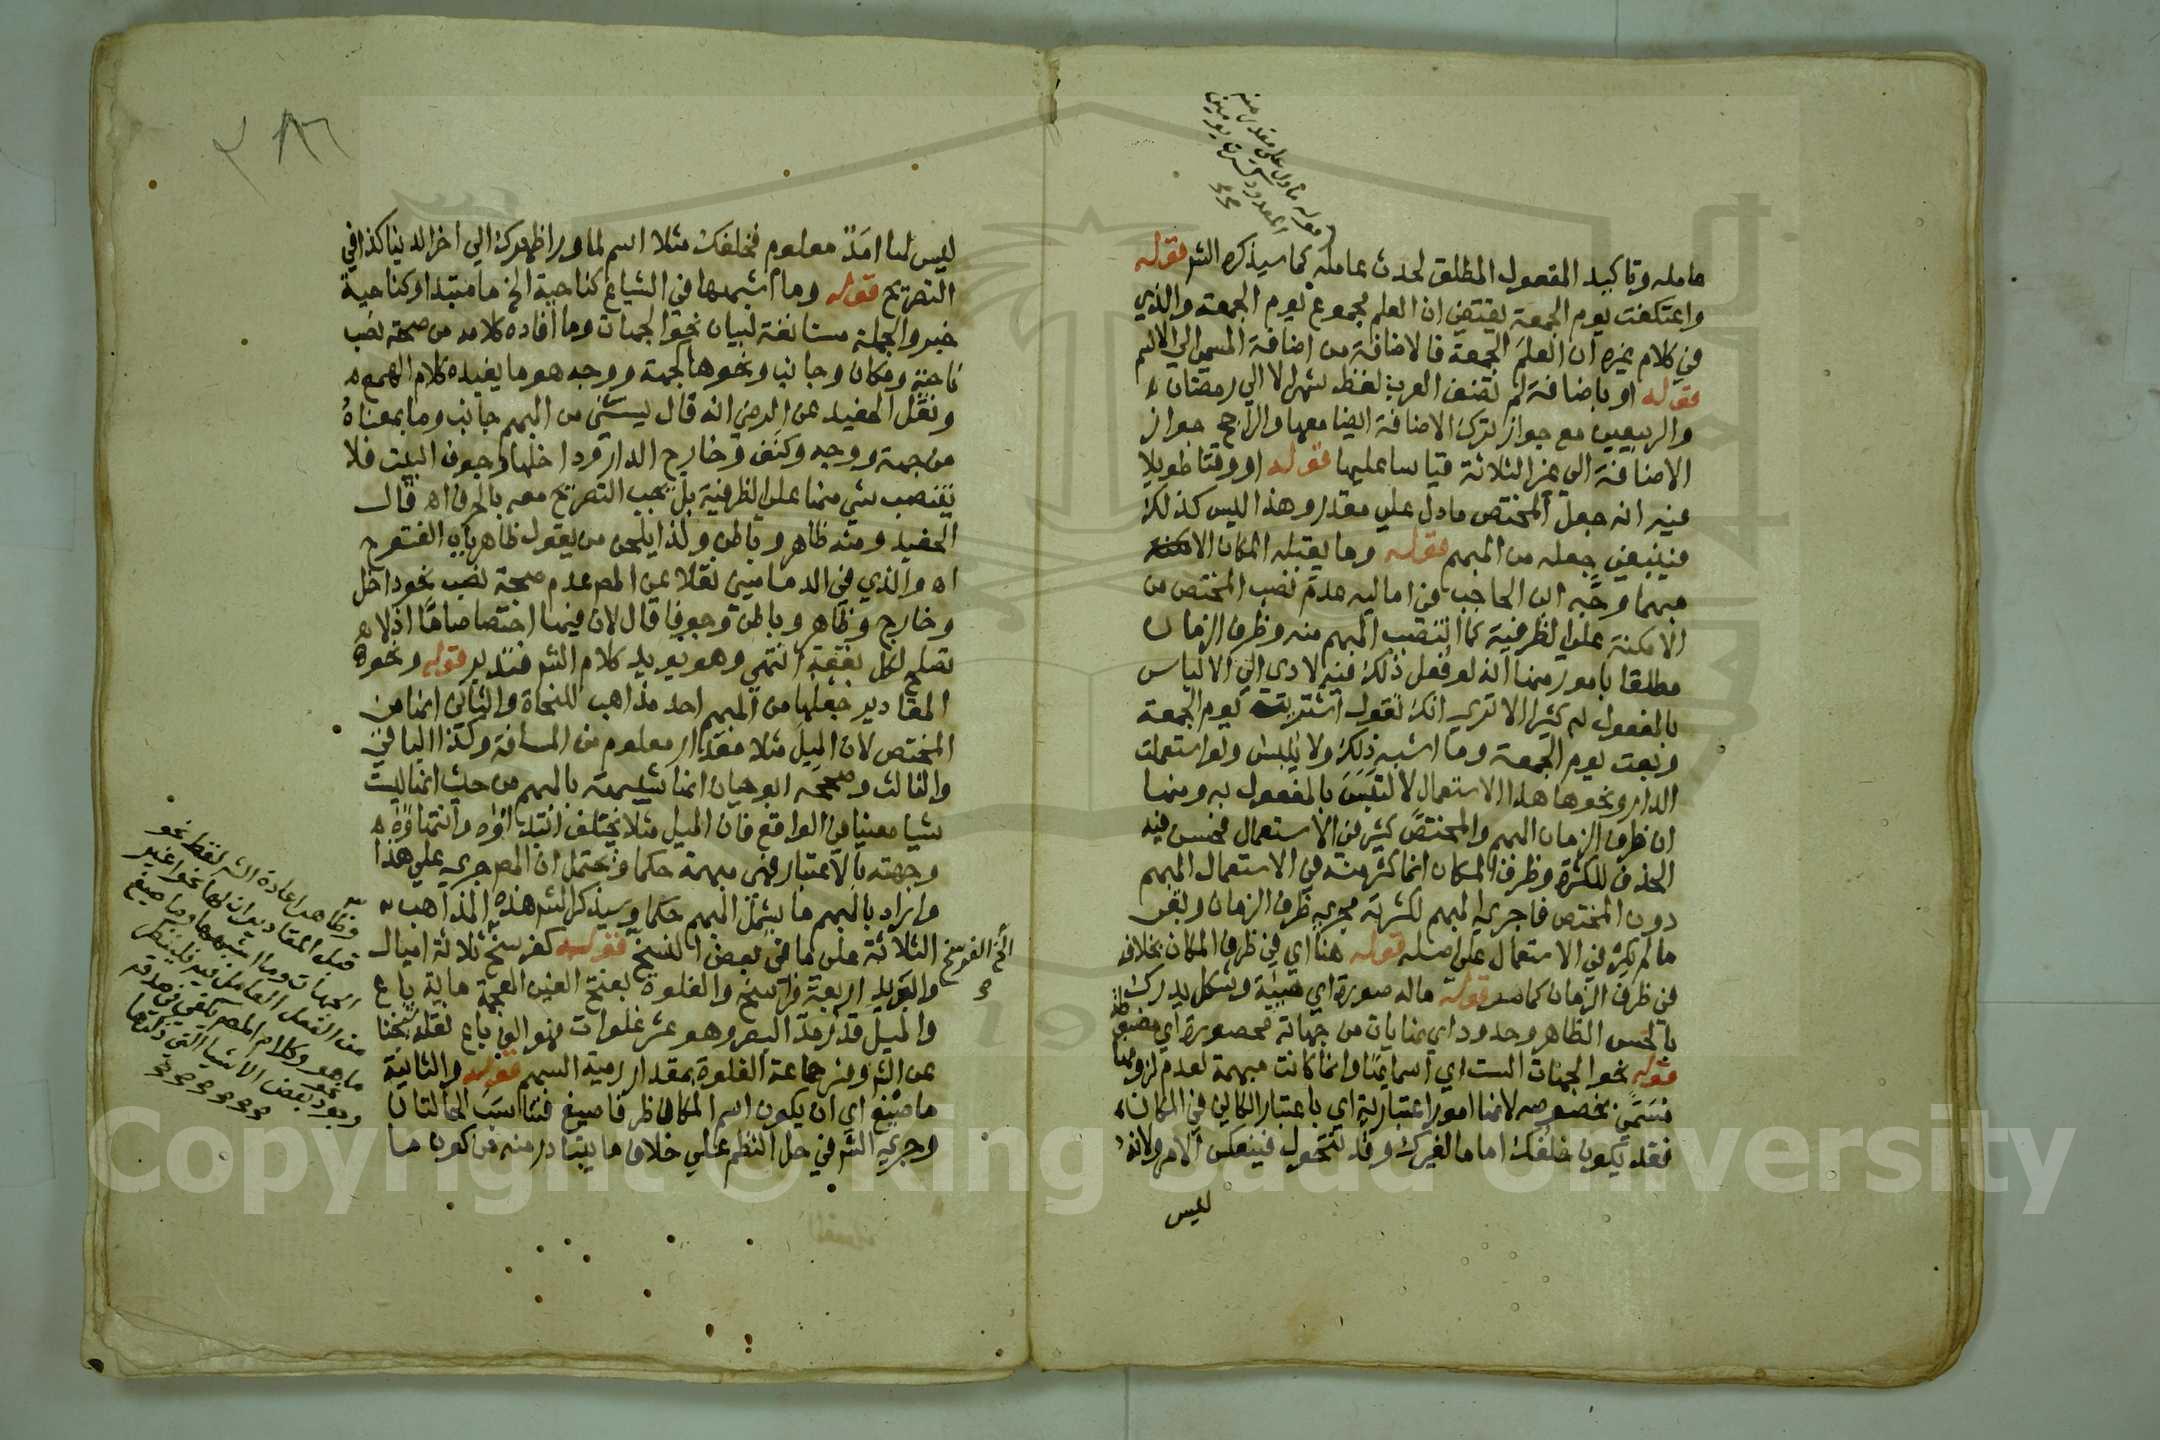 عامله وتاكيد المفعول المطلق لحدث عامله كما سيذكره الشر قوله
واعتكفت يوم الجمعة يقتضي ان العلم مجموع يوم الجمعة والذي
في كلام غيره ان العلم الجمعة فالاضافة من اضافة المسمي الي الاسم
قوله او باضافة لم تضف العرب لفظ شهر الا الي رمضان
والربيعين مع جواز ترك الاضافة ايضا معها والراجح جواز
الاضافة الي غير الثلاثة قياسا عليها قوله او وقتا طويلا
فيه انه جعل المختص ما دل علي مقدر وهذا ليس كذلك
فينبغي جعله من المبهم قوله وما يقبله المكان الا
مبهما وجه ابن الحاجب في اماليه عدم نصب المختص من
الامكنة علي الظرفية كما انتصب المبهم منه وظرف الزمان
مطلقا بامور منها انه لو فعل ذلك فيه لادي الي الالباس
بالمفعول به كثيرا الا تري انك تقول اشتريت يوم الجمعة
وبعت يوم الجمعة وما اشبه ذلك ولا يلبس ولو استعملت
الدار ونحوها هذا الاستعمال لالتبس بالمفعول به ومنها
ان ظرف الزمان المبهم والمختص كثير في الاستعمال فحسن فيه
الحذف للكثرة وظرف المكان انما كثر منه في الاستعمال المبهم
دون المختص فاجري المبهم لكثرته مجري ظرف الزمان وبقي
ما لم يكثر في الاستعمال علي اصله قوله هنا اي في ظرف المكان بخلافه
في ظرف الزمان كما مر قوله ماله صورة اي هيئة وشكل يدرك
بالحس الظاهر وحدود اي نهايات من جهاته محصورة اي مضبوطة
قوله نحو الجهات الست اي اسمائها وانما كانت مبهمة لعدم لزومها
مسمي بخصوصه لانها امور اعتبارية اي باعتبار الكائن في المكان
فقد يكون خلفك اماما لغيرك وقد تتحول فينعكس الامر ولانه
ليس
قوله ما دل علي مقدر منه
المعدود كسرت يومين
ليس لها امد معلوم فخلفك مثلا اسم لما وراء ظهرك الي اخر الدنيا كذا في
التصريح قوله وما اشبهها في الشياع كناحية الخ ما مبتدا وكناحية
خبر والجملة مستانفة لبيان نحو الجهات وما افاده كلامه من صحة نصب
ناحية ومكان وجانب ونحوها كجهة ووجه هو ما يفيده كلام الهمع
ونقل الحفيد عن الرضي انه قال يستثني من المبهم جانب وما بمعناه
من جهة ووجه وكنف وخارج الدار وداخلها وجوف البيت فلا
ينتصب شي منها علي الظرفية بل يجب التصريح معه بالحرف اه قال
الحفيد ومنه ظاهر وباطن ولذا يلحن من يقول ظاهر باب الفتوح
اه والذي في الدماميني نقلا عن المص عدم صحة نصب نحو داخل
وخارج وظاهر وباطن وجوف قال لان فيها اختصاصا ما اذ لا
تصلح لكل بقعة انتهي وهو يويد كلام الشر فتدبر قوله ونحوه
المقادير جعلها من المبهم احد مذاهب للنحاة والثاني انها من
المختص لان الميل مثلا مقدار معلوم من المسافة وكذا الباقي
والثالث وصححه ابو حيان انها شبيهة بالمبهم من حيث انها ليست
شيا معينا في الواقع فان الميل مثلا يختلف ابتداؤه وانتهاؤه
وجهته بالاعتبار فهي مبهمة حكما ويحتمل ان المص جري علي هذا
واراد بالمبهم ما يشمل المبهم حكما وسيذكر الشر هذه المذاهب
الثلاثة علي ما في بعض النسخ قوله كفرسخ ثلاثة اميال
والبريد اربعة فراسخ والغلوة بفتح الغين المعجمة ماية باع
والميل قدر مد البصر وهو عشر غلوات فهو الف باع نقله شيخنا
عن الشر وفسر جماعة الغلوة بمقدار رمية السهم قوله والثانية
ما صيغ اي ان يكون اسم المكان ظرفا صيغ فتناسب الحالتان
وجري الشر في حل النظم علي خلاف ما يتبادر منه من كون ما
الخ الفرسخ
وظاهر اعادة الشر لفظ نحو
قبل المقادير ان لها نحوا غير
الجهات وما اشبهها وما صيغ
من الفعل العامل فيه فلينظر
ما هو وكلام المص يكفي في صدقه
وجود بعض الاشيا التي ذكرها
٢٨٦
Copyright © King Saud University